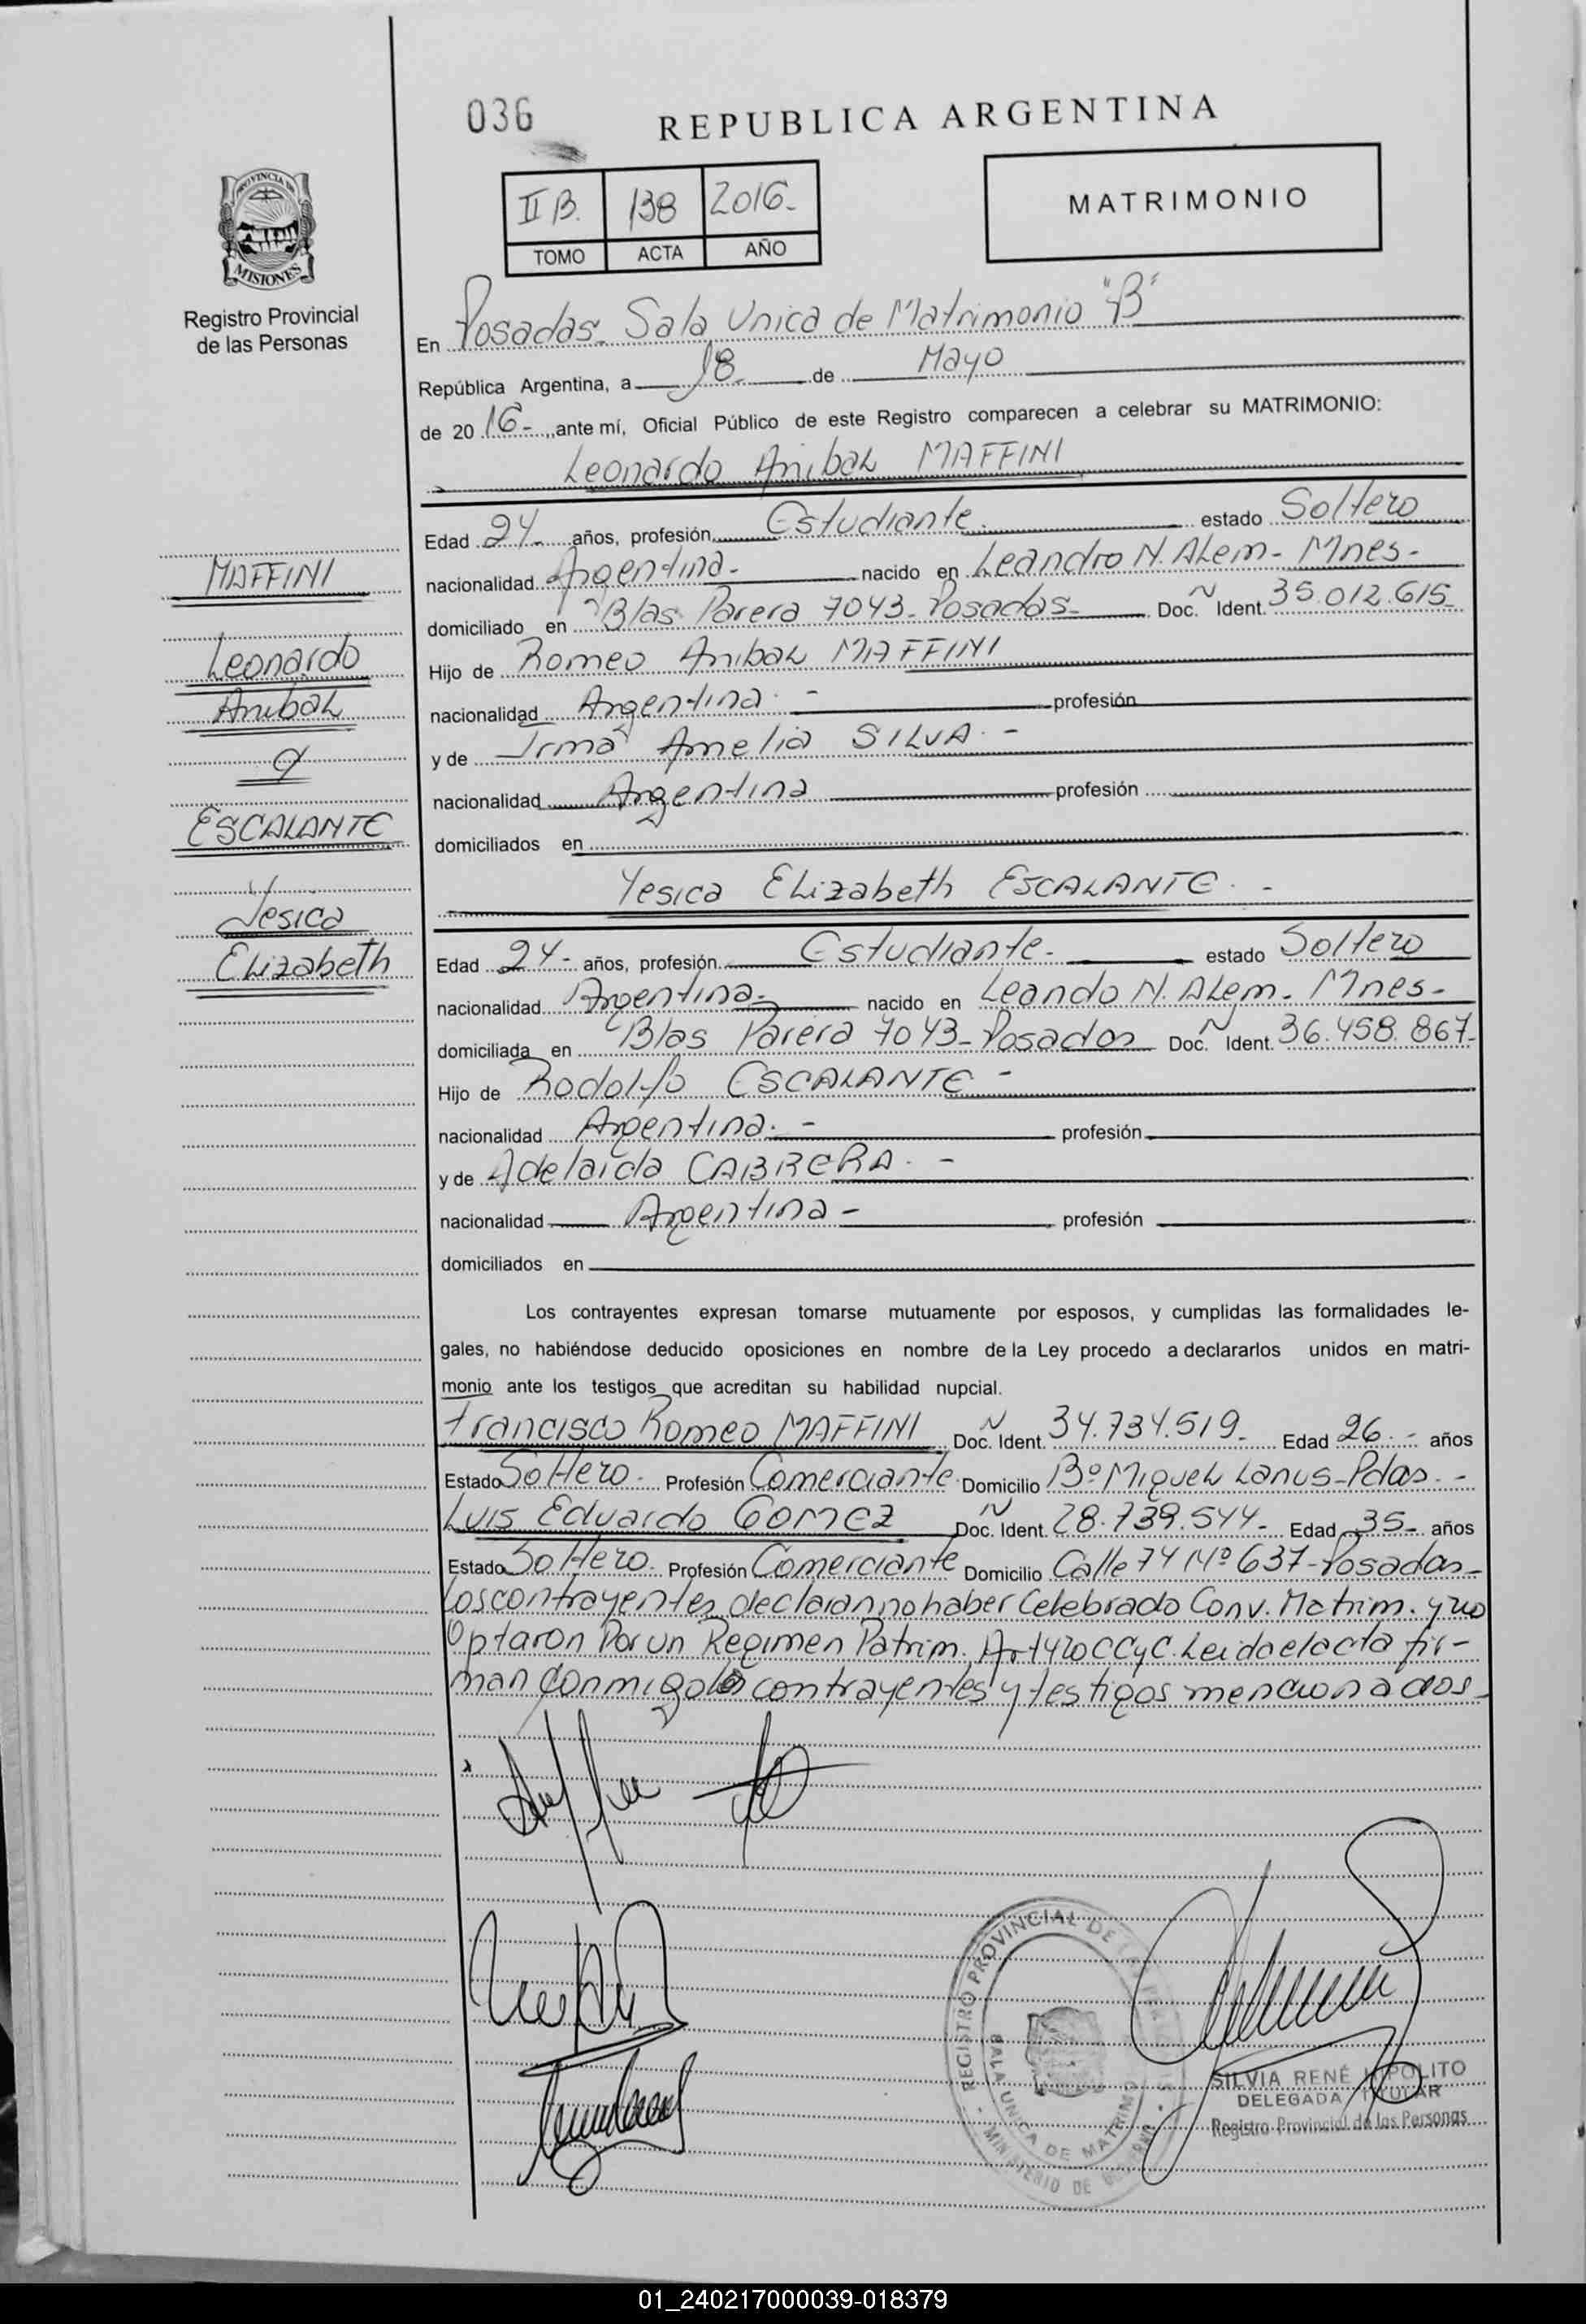 036
REPUBLICA ARGENTINA
II B. 138 2016-
TOMO ACTA AÑO
MATRIMONIO
PROVINCIA DE
MISIONES
Registro Provincial
de las Personas
En Posadas- Sala Unica de Matrimonio "B"
República Argentina, a 18- de Mayo
de 20 16- ,ante mí, Oficial Público de este Registro comparecen a celebrar su MATRIMONIO:
Leonardo Anibal MAFFINI
Edad 24- años, profesión Estudiante- estado Soltero
nacionalidad Argentina- nacido en Leandro N. Alem- Mnes-
domiciliado en Blas Parera 7043- Posadas- Doc. Ident. 35.012.615-
Hijo de Romeo Anibal MAFFINI
nacionalidad Argentina. - profesión
y de Irma Amelia SILVA. -
nacionalidad Argentina profesión
domiciliados en
Yesica Elizabeth ESCALANTE. -
Edad 24- años, profesión Estudiante- estado Soltero
nacionalidad Argentina- nacido en Leando N. Alem- Mnes-
domiciliada en Blas Parera 7043- Posadas Doc. Ident. 36.458.867-
Hijo de Rodolfo ESCALANTE -
nacionalidad Argentina. - profesión
y de Adelaida CABRERA. -
nacionalidad Argentina - profesión
domiciliados en
MAFFINI
Leonardo
Anibal
y
ESCALANTE
Yesica
Elizabeth
Los contrayentes expresan tomarse mutuamente por esposos, y cumplidas las formalidades le-
gales, no habiéndose deducido oposiciones en nombre de la Ley procedo a declararlos unidos en matri-
monio ante los testigos que acreditan su habilidad nupcial.
Francisco Romeo MAFFINI Doc. Ident. 34.734.519- Edad 26.- años
Estado Soltero- Profesión Comerciante Domicilio Bº Miguel Lanus-Pdas. -
Luis Eduardo GOMEZ Doc. Ident. 28.739.544- Edad 35- años
Estado Soltero- Profesión Comerciante Domicilio Calle 74 Nº 637-Posadas-
Los contrayentes declaran no haber Celebrado Conv. Matrim. y no
Optaron Por un Regimen Patrim. Art 420 CCyC. Leida el acta fir-
man conmigo los contrayentes y testigos mencionados-
REGISTRO PROVINCIAL DE
SALA UNICA DE MATRIMO
MINISTERIO DE
SILVIA RENÉ
DELEGADA TITULAR
Registro Provincial de las Personas
01_240217000039-018379